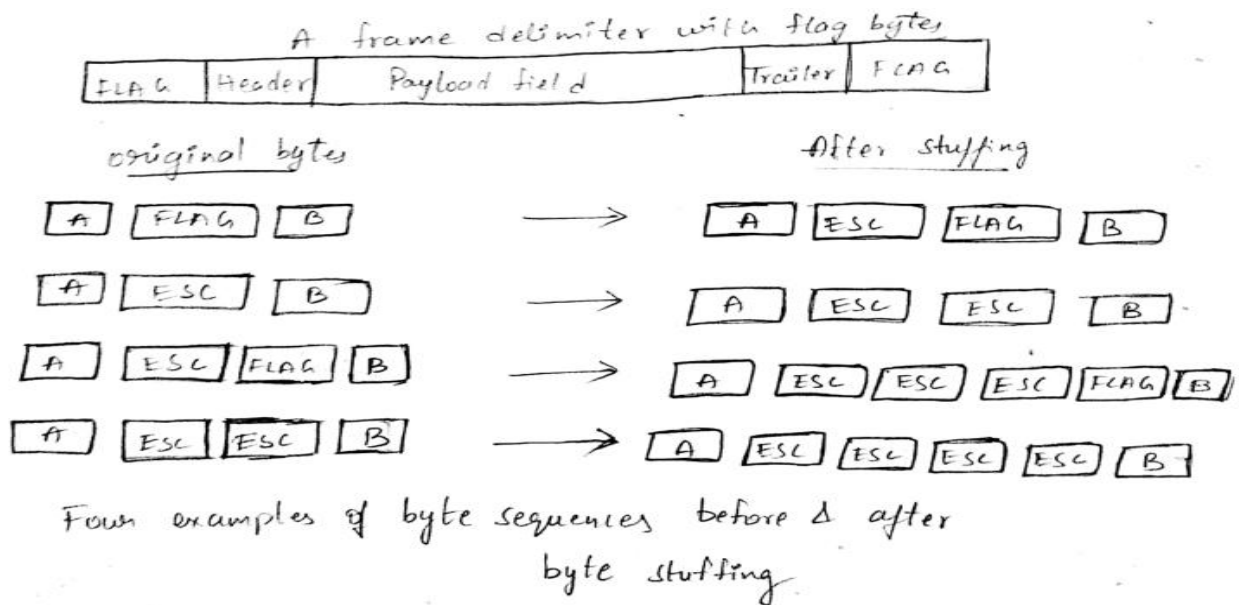 A frame delimiter with flag bytes
FLAG Header Payload field Trailer FLAG
original bytes After stuffing
A FLAG B → A ESC FLAG B
A ESC B → A ESC ESC B
A ESC FLAG B → A ESC ESC ESC FLAG B
A ESC ESC B → A ESC ESC ESC ESC B
Four examples of byte sequences before & after
byte stuffing